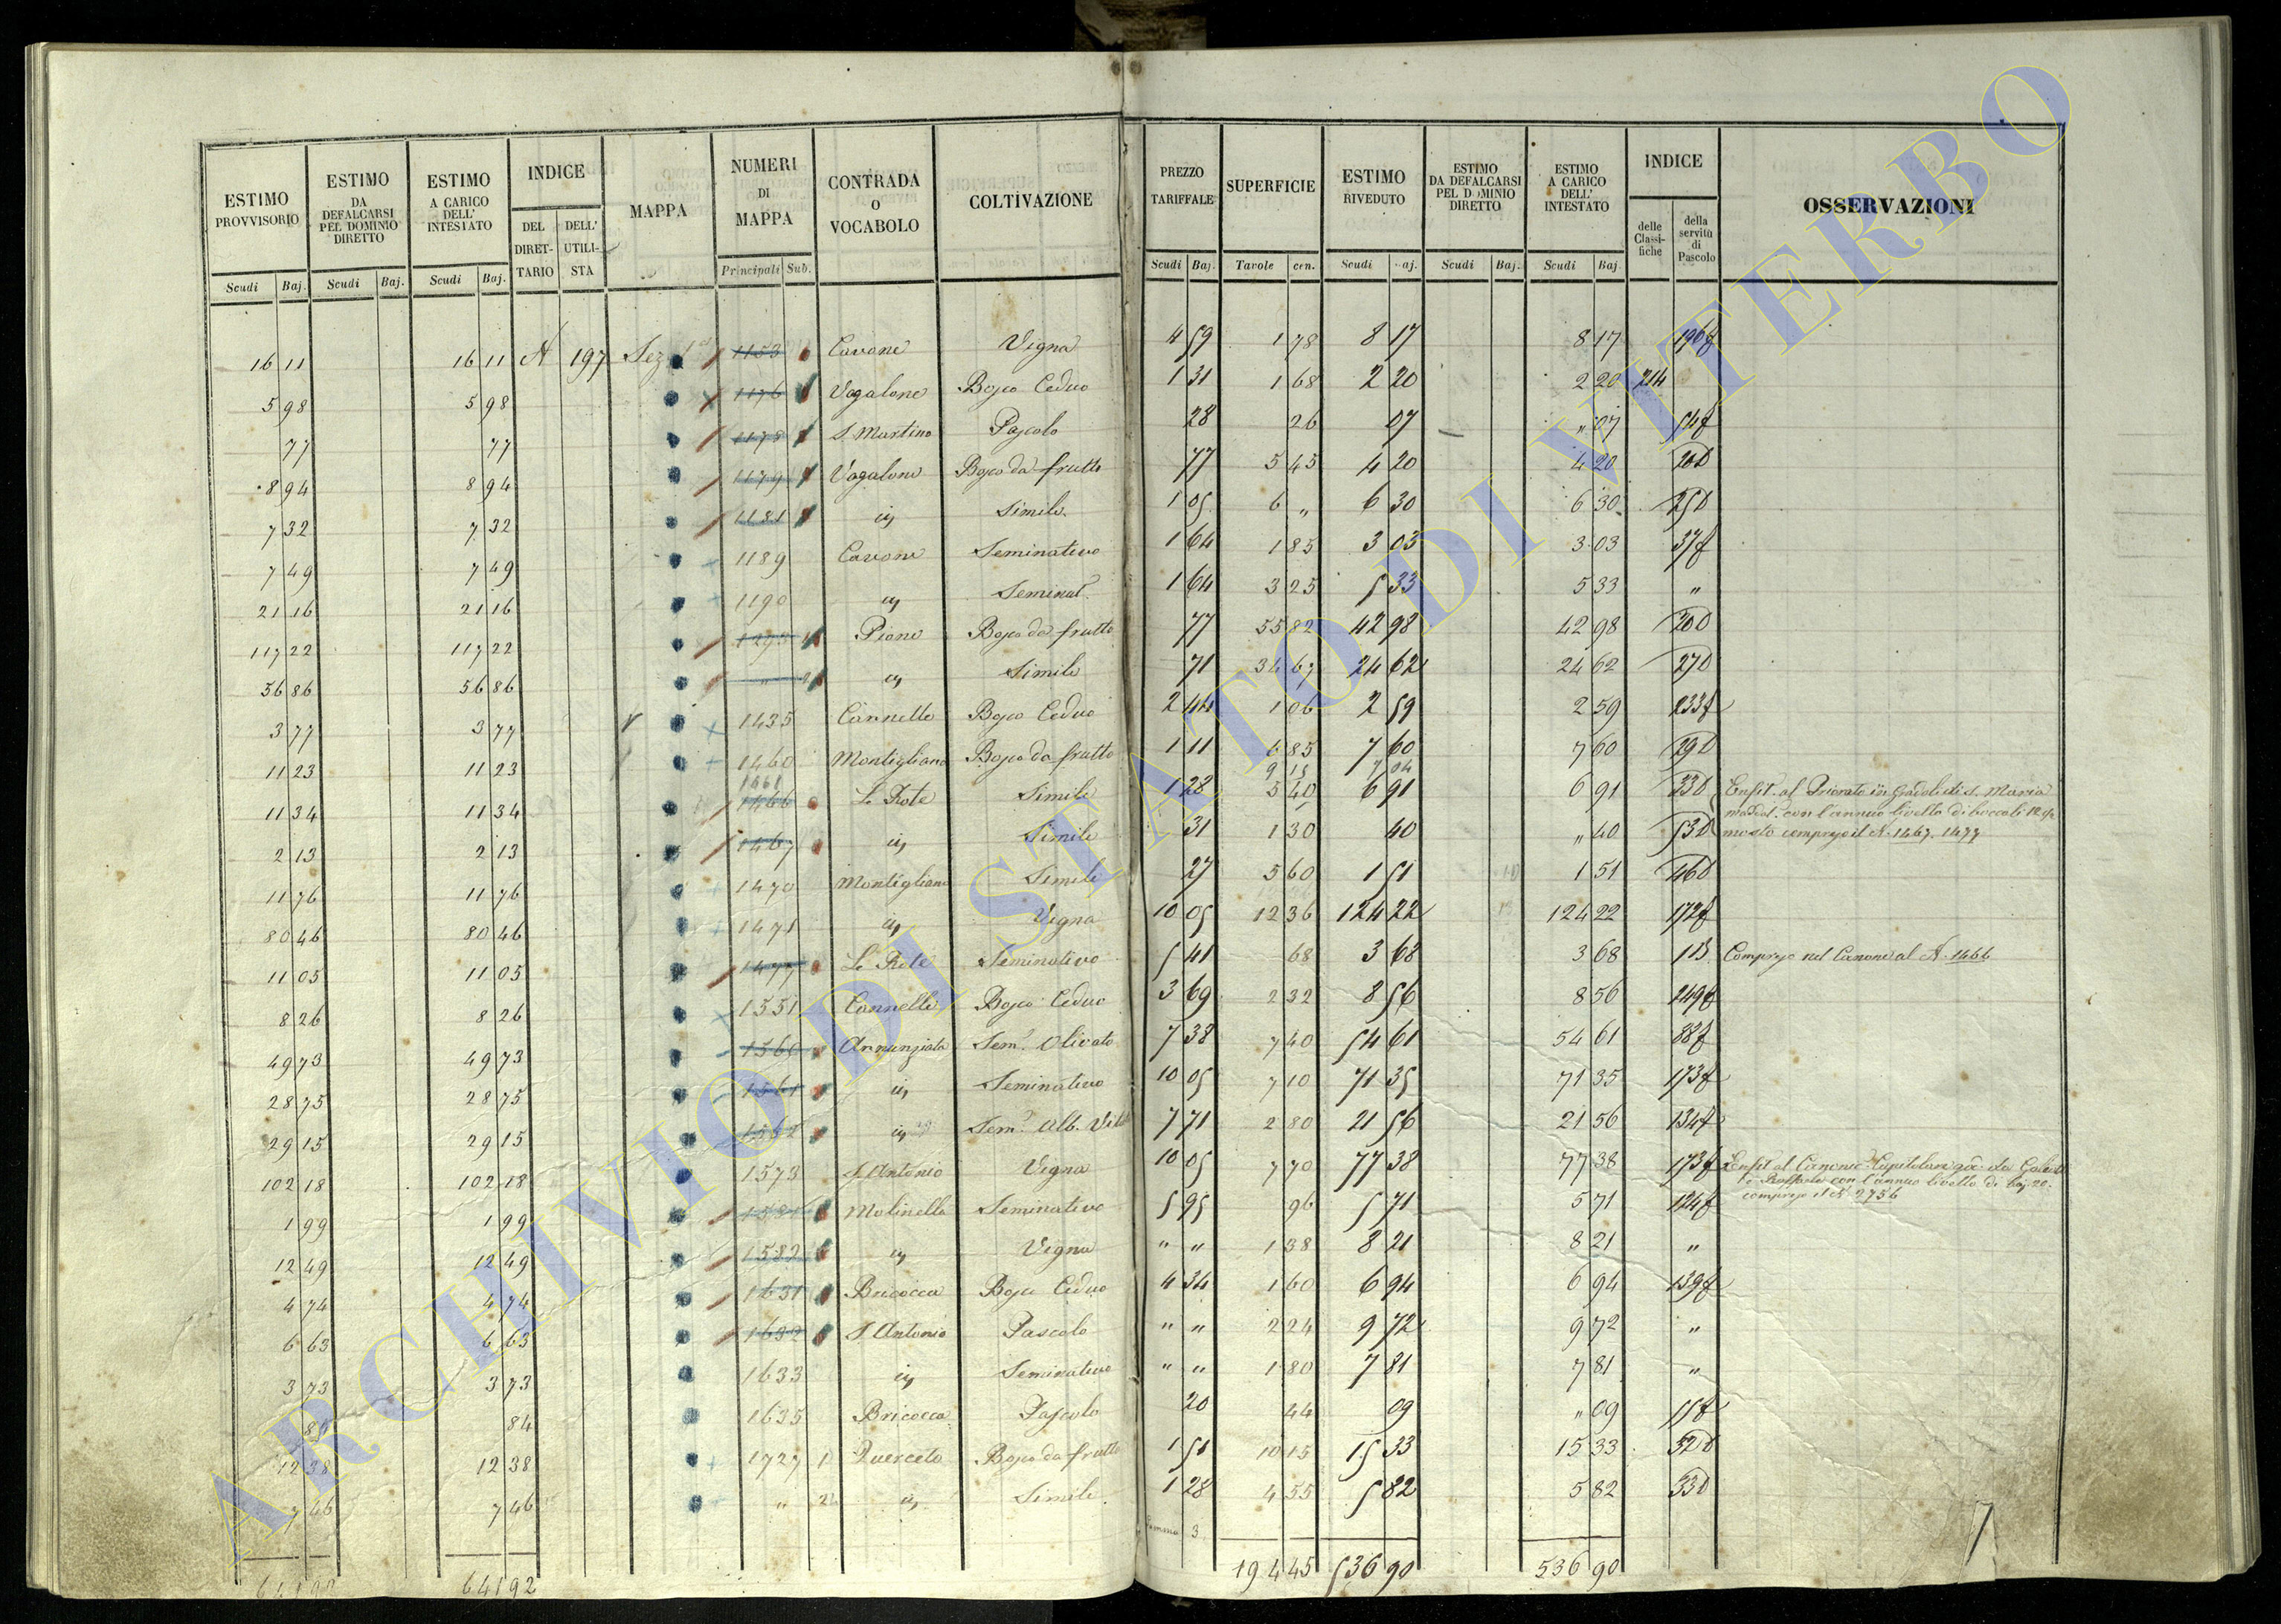 ESTIMO PROVVISORIO | ESTIMO DA DEFALCARSI PEL DOMINIO DIRETTO | ESTIMO A CARICO DELL' INTESTATO | INDICE DEL DIRETTARIO | DELL' UTILISTA | MAPPA | NUMERI DI MAPPA | CONTRADA O VOCABOLO | COLTIVAZIONE | PREZZO TARIFFALE | SUPERFICIE | ESTIMO RIVEDUTO | ESTIMO DA DEFALCARSI PEL DOMINIO DIRETTO | ESTIMO A CARICO DELL' INTESTATO | INDICE delle Classifiche | della servitù di Pascolo | OSSERVAZIONI
Scudi Baj. | Scudi Baj. | Scudi Baj. | Principali Sub. | Scudi Baj. | Tavole cen. | Scudi aj. | Scudi Baj. | Scudi Baj.
16 11 | 16 11 | N 197 | Sez | 1153 | Cavone | Vigna | 4 59 | 1 78 | 8 17 | 8 17 | 196f
5 98 | 5 98 | 1176 | Vagalone | Bosco Ceduo | 1 31 | 1 68 | 2 20 | 2 20 | 214
77 | 77 | 1178 | S. Martino | Pascolo | 28 | 26 | 07 | " 07 | 54f
8 94 | 8 94 | 1179 | Vagalone | Bosco da frutto | 77 | 5 45 | 4 20 | 4 20 | 20D
7 32 | 7 32 | 1181 | Simile | 1 05 | 6 " | 6 30 | 6 30 | 25D
7 49 | 7 49 | 1189 | Cavone | Seminativo | 1 64 | 1 85 | 3 03 | 3 03 | 37f
21 16 | 21 16 | 1190 | Seminat. | 1 64 | 3 25 | 5 33 | 5 33 | "
117 22 | 117 22 | Piane | Bosco da frutto | 77 | 55 82 | 42 98 | 42 98 | 20D
56 86 | 56 86 | " | Simile | 71 | 34 67 | 24 62 | 24 62 | 27D
3 77 | 3 77 | 1435 | Cannelle | Bosco Ceduo | 2 44 | 1 06 | 2 59 | 2 59 | 233f
11 23 | 11 23 | 1460 | Montigliano | Bosco da frutto | 1 11 | 6 85 | 7 60 | 7 60 | 29D
11 34 | 11 34 | 1461 1466 | Le Rote | Simile | 1 28 | 5 40 | 6 91 | 6 91 | 33D | Enfit. al Priorato in Gradoli di S. Maria
2 13 | 2 13 | 1467 | Simile | 31 | 1 30 | 40 | " 40 | 53D | compreso il N. 1467. 1477
11 76 | 11 76 | 1470 | Montigliano | Simile | 27 | 5 60 | 1 51 | 1 51 | 46D
80 46 | 80 46 | 1471 | Vigna | 10 05 | 12 36 | 124 22 | 124 22 | 172f
11 05 | 11 05 | 1477 | Le Rote | Seminativo | 5 41 | 68 | 3 68 | 3 68 | 113 | Compreso nel Canone al N. 1466
8 26 | 8 26 | 1551 | Cannelle | Bosco Ceduo | 3 69 | 2 32 | 8 56 | 8 56 | 249f
49 73 | 49 73 | 1560 | Annunziata | Sem. Olivato | 7 38 | 7 40 | 54 61 | 54 61 | 88f
28 75 | 28 75 | 1561 | Seminativo | 10 05 | 7 10 | 71 35 | 71 35 | 173f
29 15 | 29 15 | 1562 | Sem. Alb. Vit. | 7 71 | 2 80 | 21 56 | 21 56 | 134f
102 18 | 102 18 | 1573 | S. Antonio | Vigna | 10 05 | 7 70 | 77 38 | 77 38 | 173f | con l'annuo livello di baj 20.
1 99 | 1 99 | 1581 | Molinella | Seminativo | 5 95 | 96 | 5 71 | 5 71 | 124f | compreso il N. 2756
12 49 | 12 49 | 1582 | Vigna | " " | 1 38 | 8 21 | 8 21 | "
4 74 | 4 74 | 1631 | Bricocca | Bosco Ceduo | 4 34 | 1 60 | 6 94 | 6 94 | 139f
6 63 | 6 63 | 1632 | S. Antonio | Pascolo | " " | 2 24 | 9 72 | 9 72 | "
3 73 | 3 73 | 1633 | Seminativo | " " | 1 80 | 7 81 | 7 81 | "
84 | 84 | 1635 | Bricocca | Pascolo | 20 | 44 | 09 | " 09 | 15f
12 38 | 12 38 | 1727 1 | Querceto | Bosco da frutto | 1 51 | 10 15 | 15 33 | 15 33 | 32D
7 46 | 7 46 | " 2 | Simile | 1 28 | 4 55 | 5 82 | 5 82 | 33D
641 92 | 194 45 | 536 90 | 536 90
ARCHIVIO DI STATO DI VITERBO